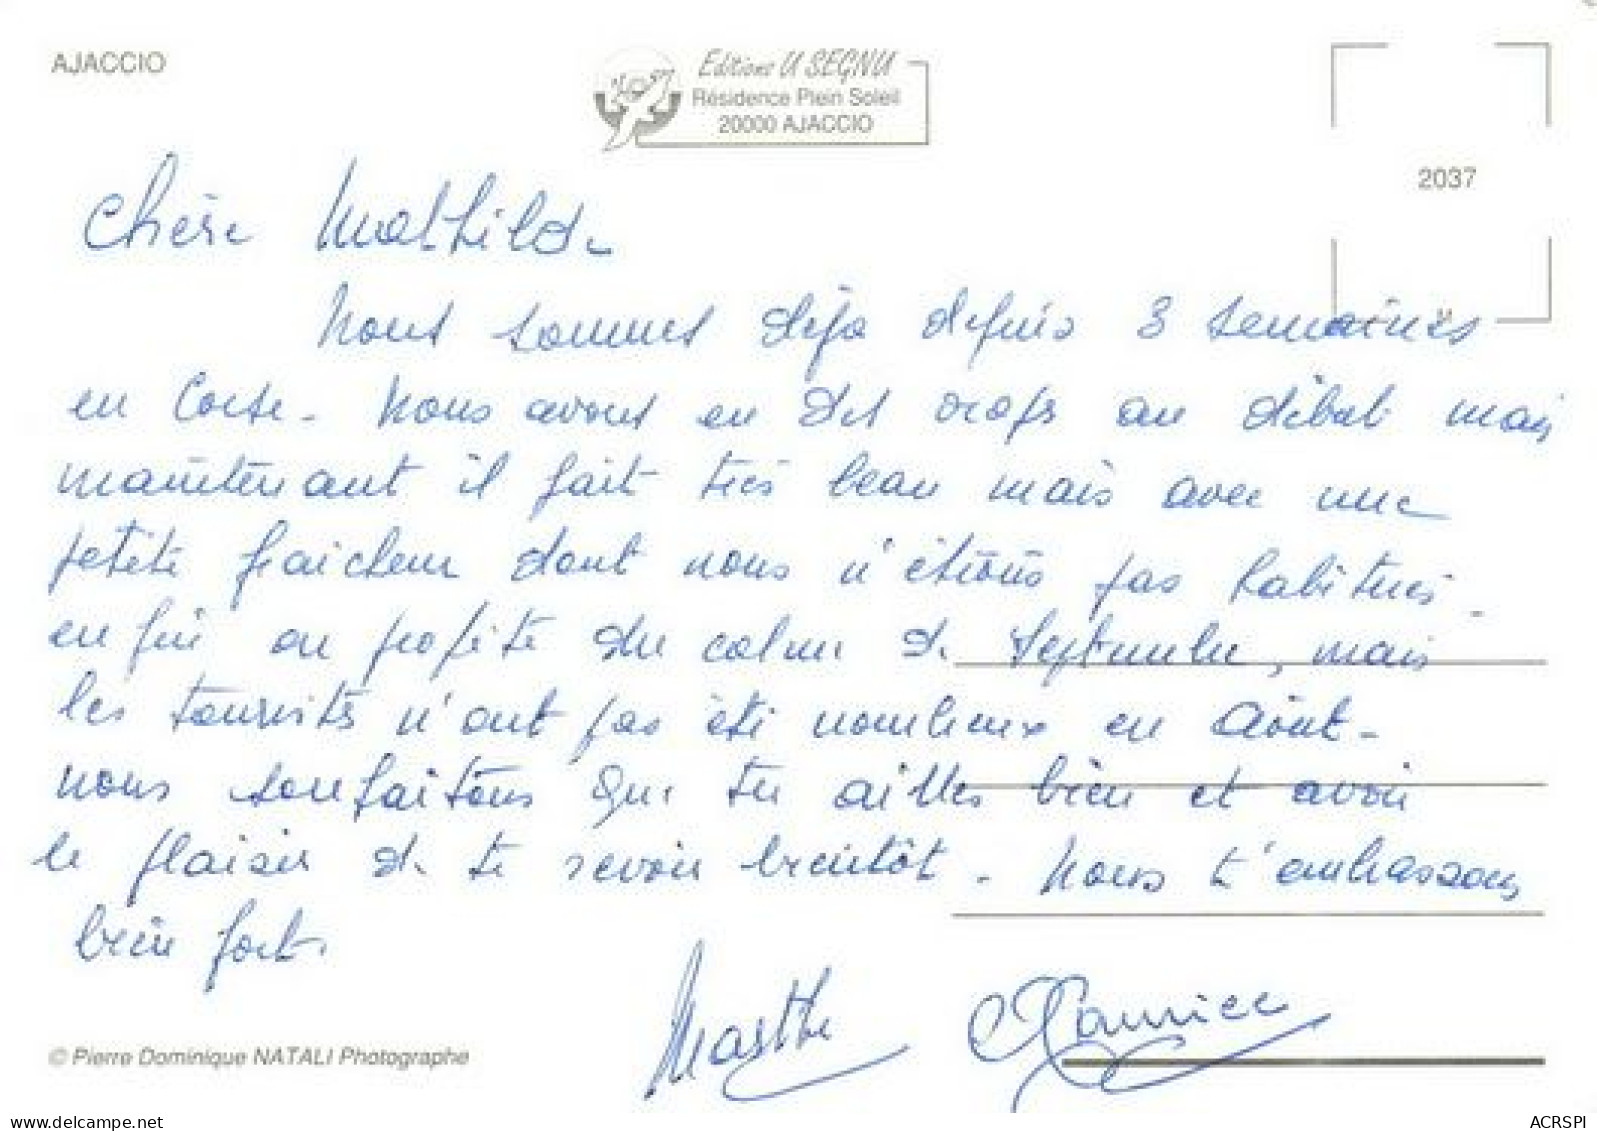 AJACCIO
Editions U SEGNU
Résidence Plein Soleil
20000 AJACCIO
2037
Chère Mathilde
Nous sommes déjà depuis 3 semaines
en Corse. Nous avons eu des orages au début mais
maintenant il fait très beau mais avec une
petite fraîcheur dont nous n'étions pas habitués.
enfin on profite du calme de Septembre, mais
les touristes n'ont pas été nombreux en Août.
nous souhaitons que tu ailles bien et avoir
le plaisir de te revoir bientôt. Nous t'embrassons
bien fort.
Marthe Maurice
© Pierre Dominique NATALI Photographe
www.delcampe.net
ACRSPI